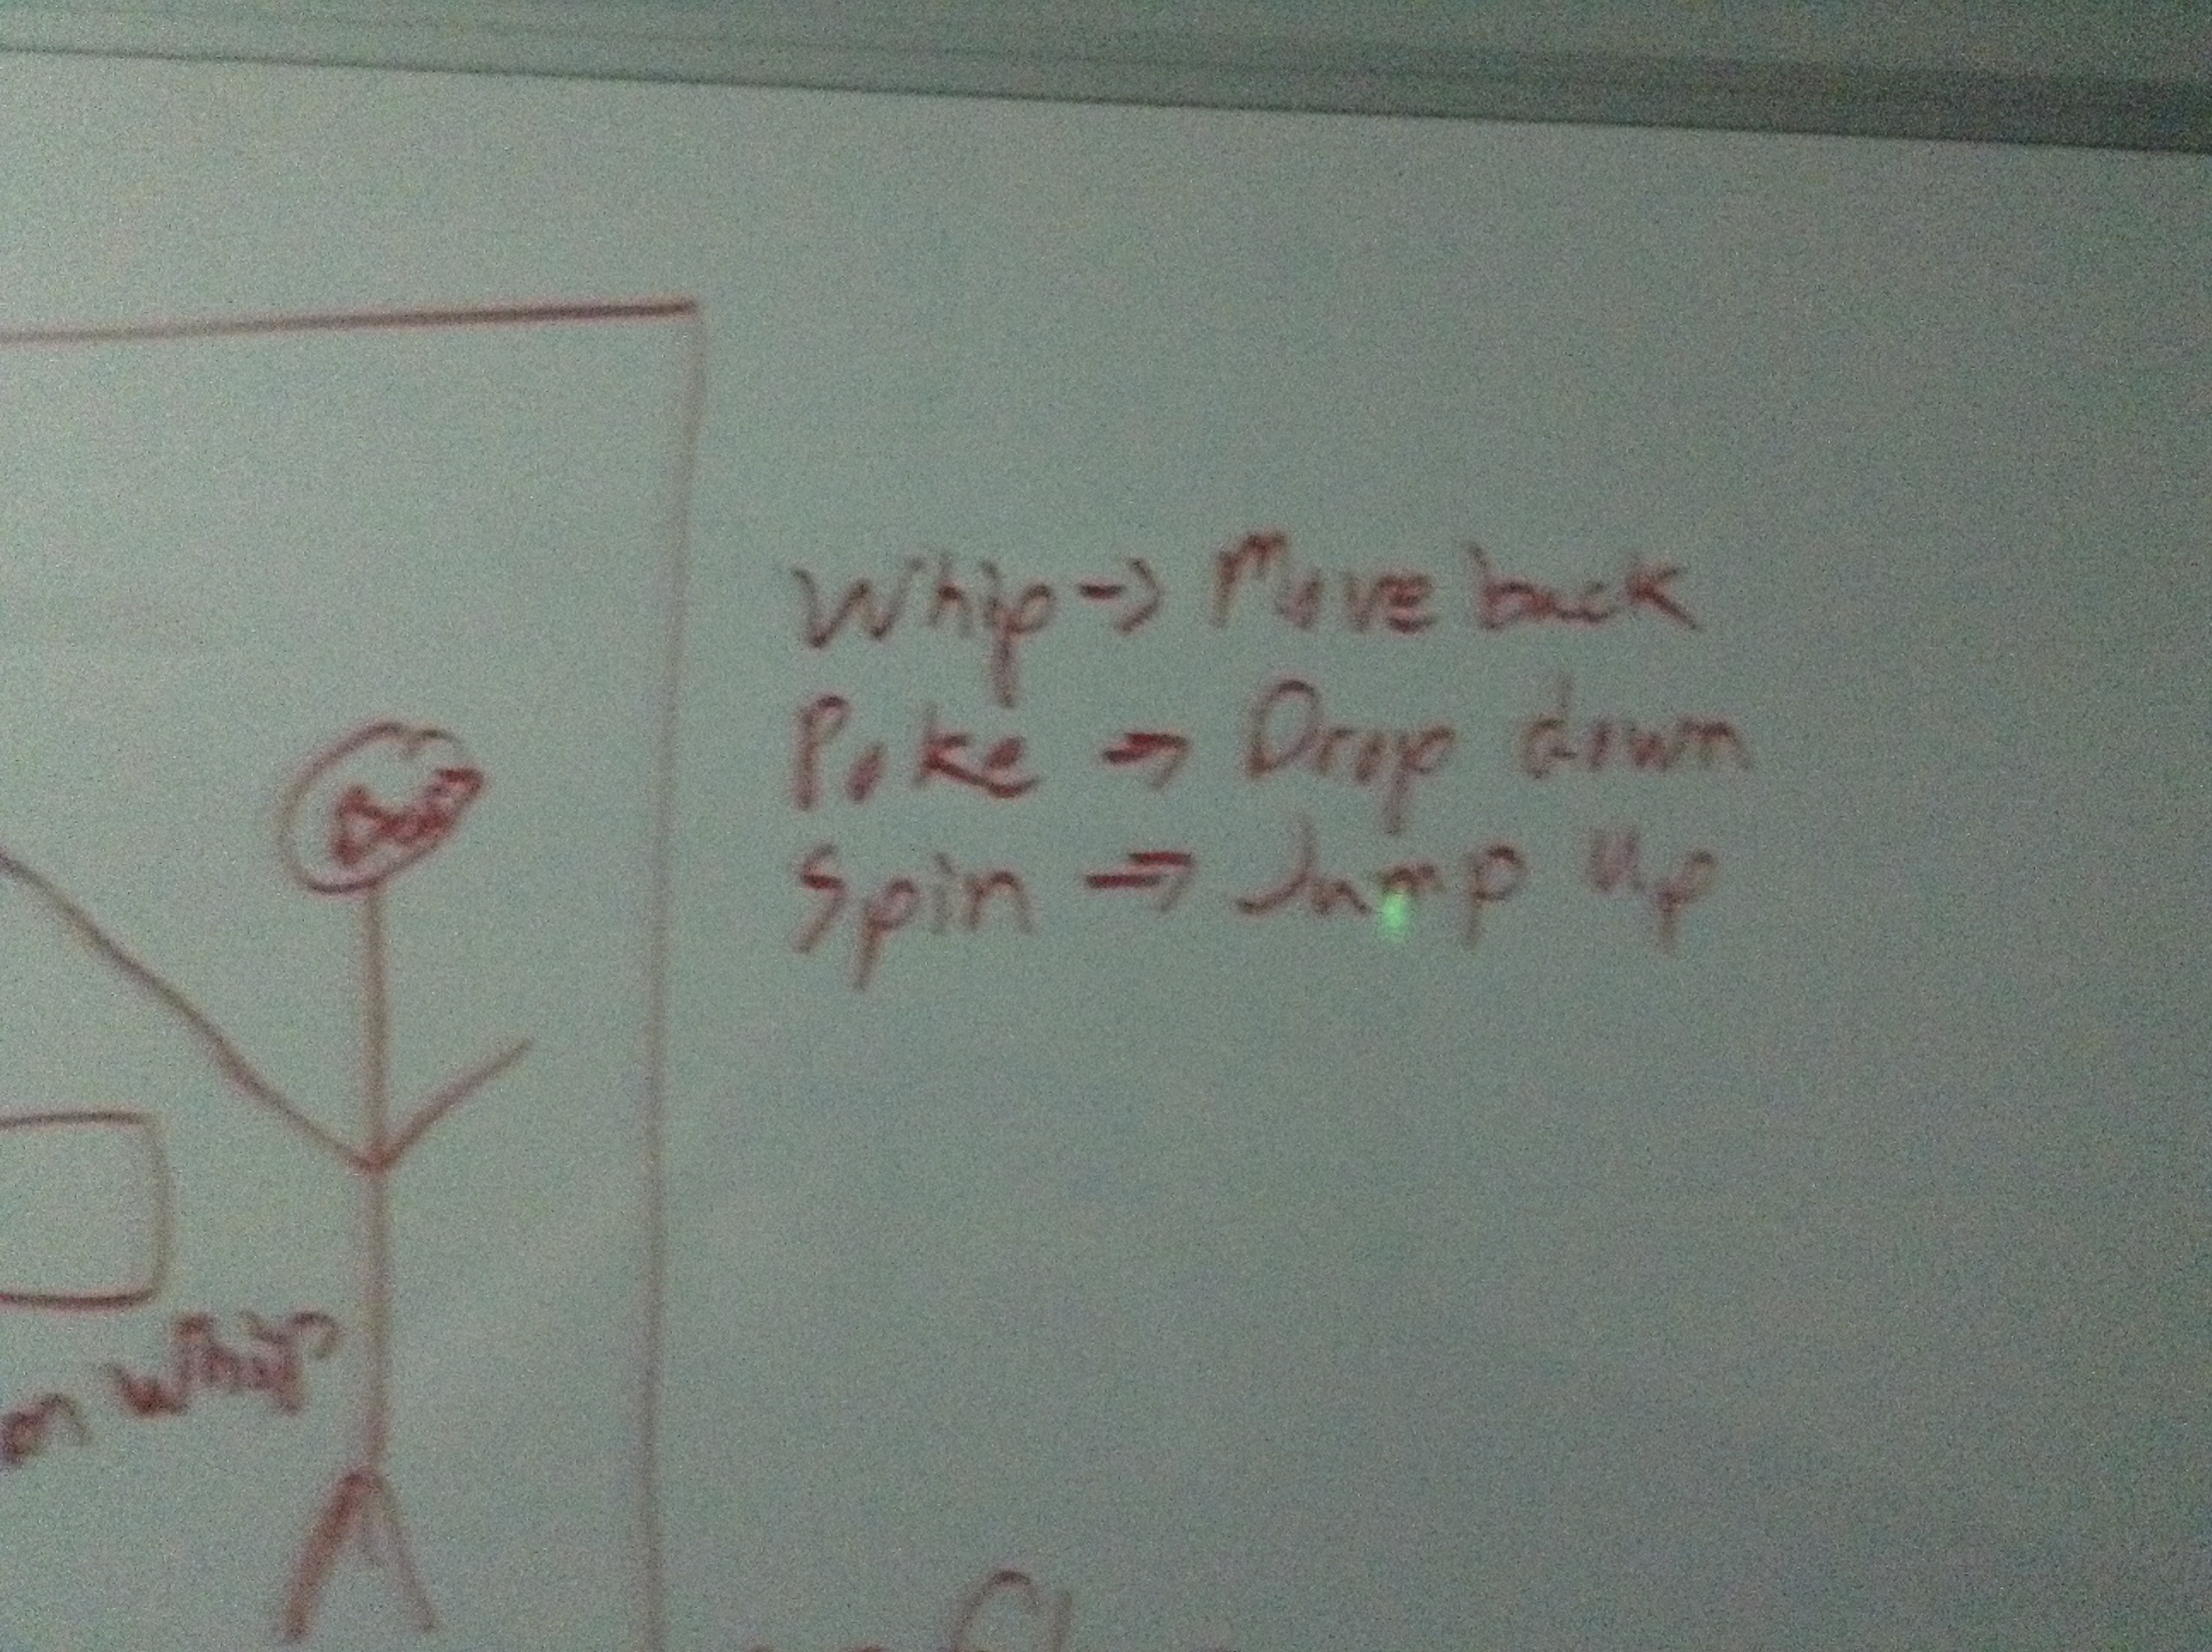 Whip -> Move back
Poke → Drop down
Spin → Jump Up
on whip